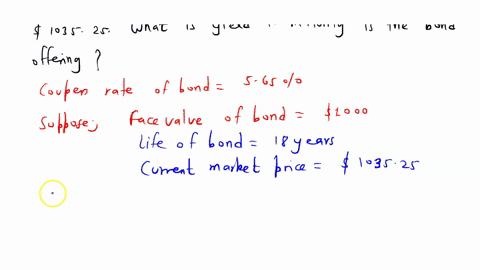 $ 1035.25. What is yield
is the bond
offering ?
Coupen rate of bond = 5.65 %
Suppose; Face value of bond = $1000
life of bond = 18 years
Current market price = $ 1035.25